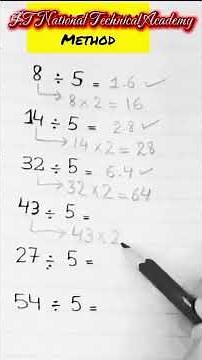 FT National Technical Academy
METHOD
8 ÷ 5 = 1.6 ✓
8 × 2 = 16
14 ÷ 5 = 2.8 ✓
14 × 2 = 28
32 ÷ 5 = 6.4 ✓
32 × 2 = 64
43 ÷ 5 =
43 × 2
27 ÷ 5 =
54 ÷ 5 =